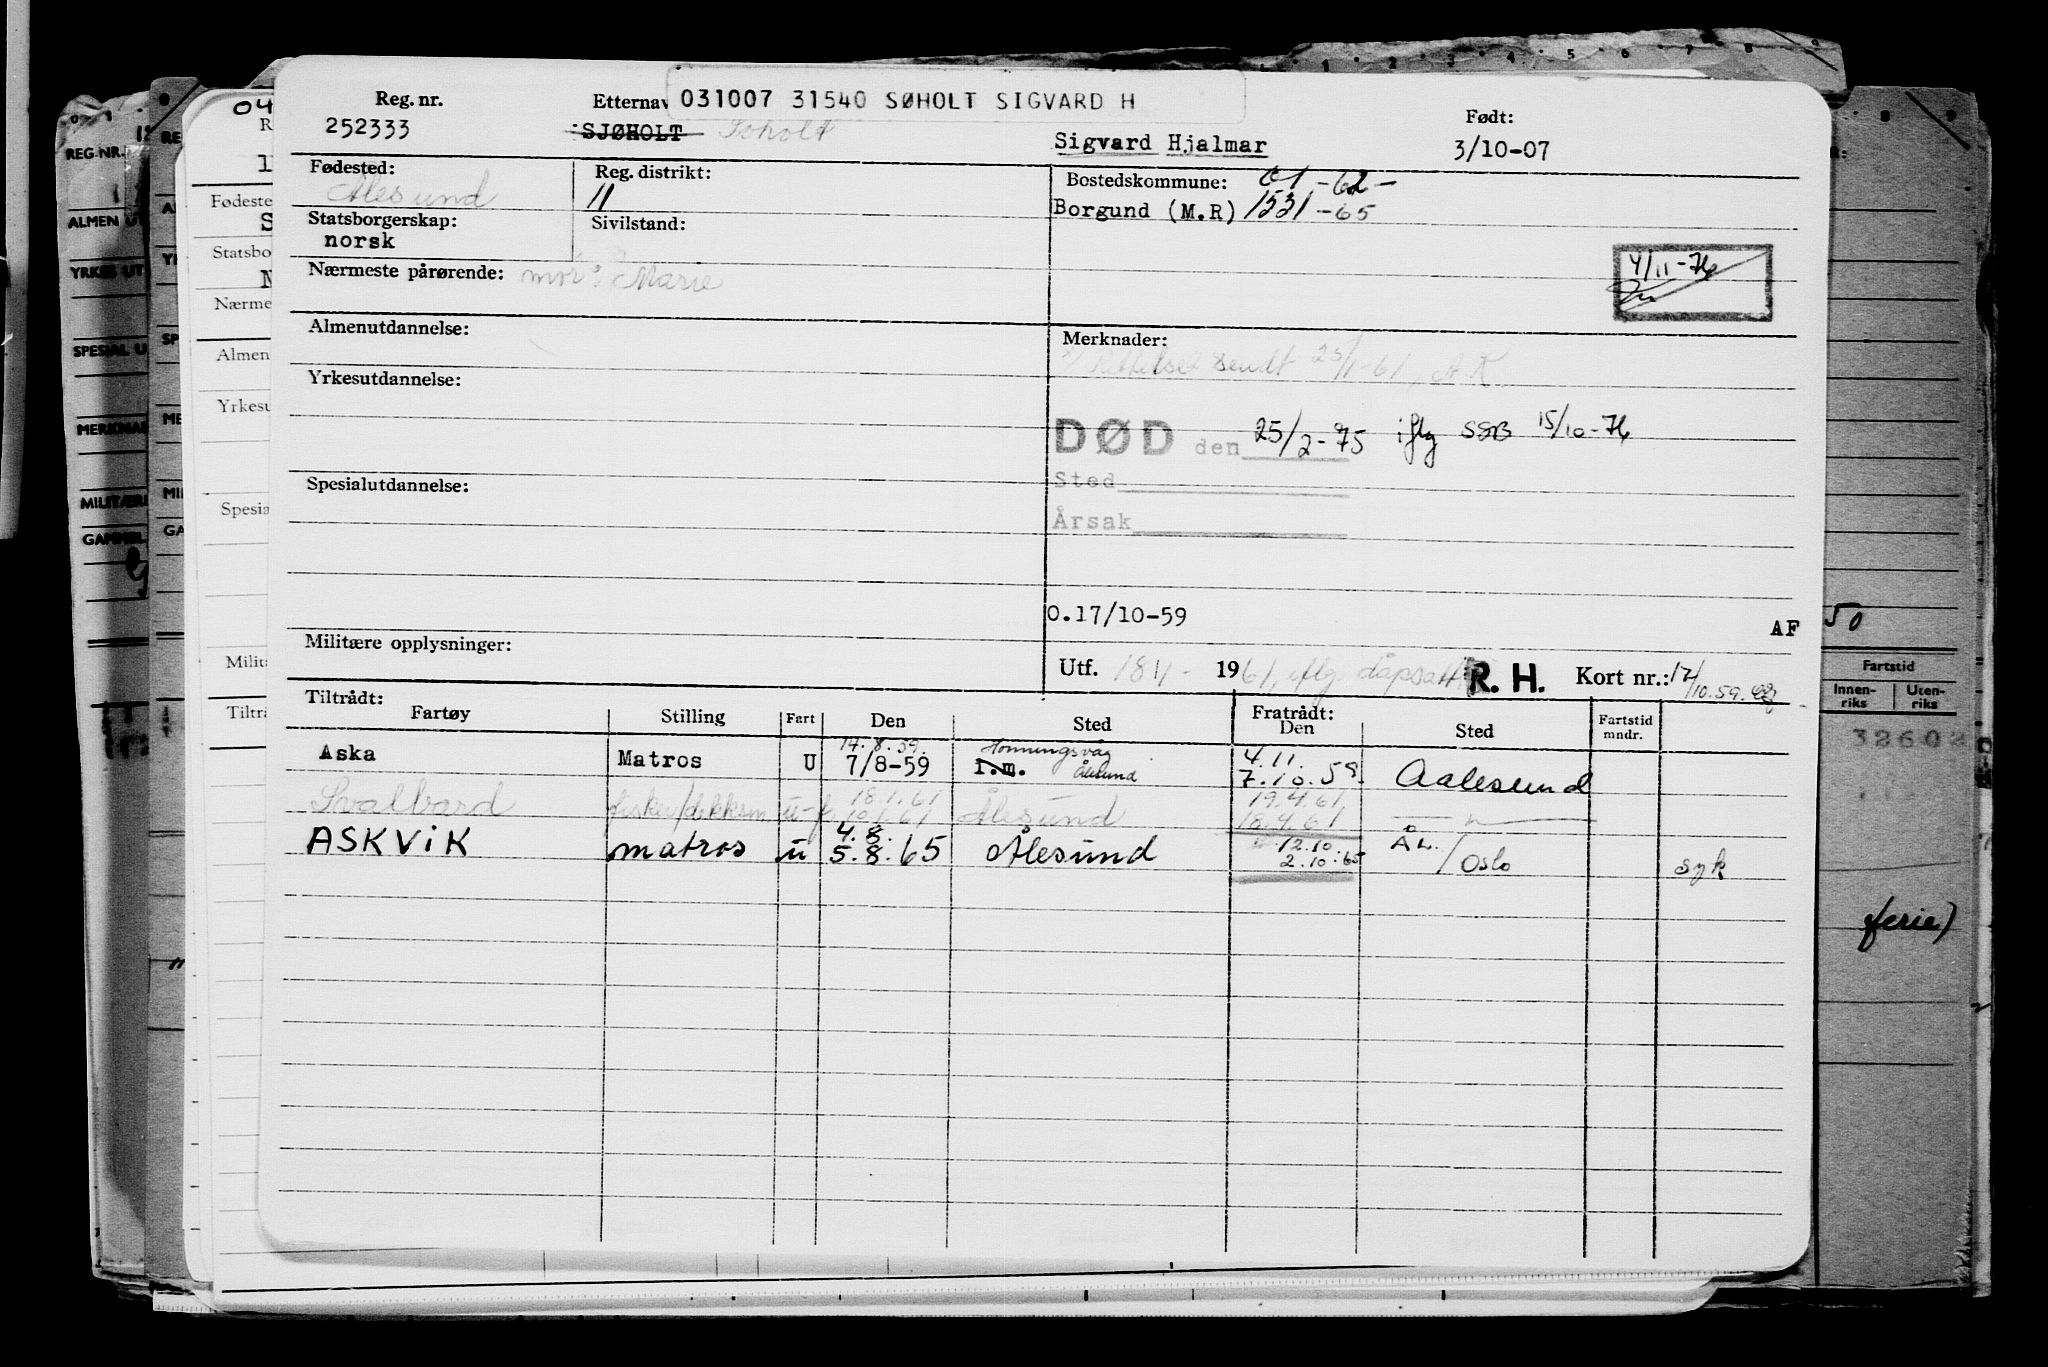 Reg. nr.
252333
Etternav
031007 31540 SØHOLT SIGVARD H
SJØHOLT Søholt
Sigvard Hjalmar
Født:
3/10-07
Fødested:
Ålesund
Reg. distrikt:
11
Bostedskommune: 01-62-
Borgund (M.R) 1531-65
Statsborgerskap:
norsk
Sivilstand:
4/11-76
Nærmeste pårørende: mor: Marie
Almenutdannelse:
Merknader:
sendt 25/1-61, A K
Yrkesutdannelse:
DØD den 25/2-75 iflg SSB 15/10-76
Sted
Årsak
Spesialutdannelse:
O.17/10-59
AF
Militære opplysninger:
Utf. 18/1- 1961, iflg. dåpsatt R. H. Kort nr.: 17/10.59.
Tiltrådt:
Fartøy Stilling Fart Den Sted Fratrådt: Den Sted Fartstid mndr.
14.8.59. Honningsvåg 4.11.
Aska Matros U 7/8-59 I.m. Ålesund 7.10.59. Aalesund
18.1.61 19.4.61
Svalbard fisker/dekksm u-f 10.1.61 Ålesund 18.4.61 — " —
4.8. 12.10 ÅL.
ASKVIK matros u 5.8.65 Ålesund 2.10.65 / Oslo syk
04
REG. NR.
ALMEN U
YRKES UT
SPESIAL U
MERKNAD
MILITÆR
GAMMEL
Fødeste
Statsbo
Nærme
Almen
Yrkesu
Spesia
Milita
Tiltrå
50
Fartstid
Innen-riks Uten-riks
32602
ferie)